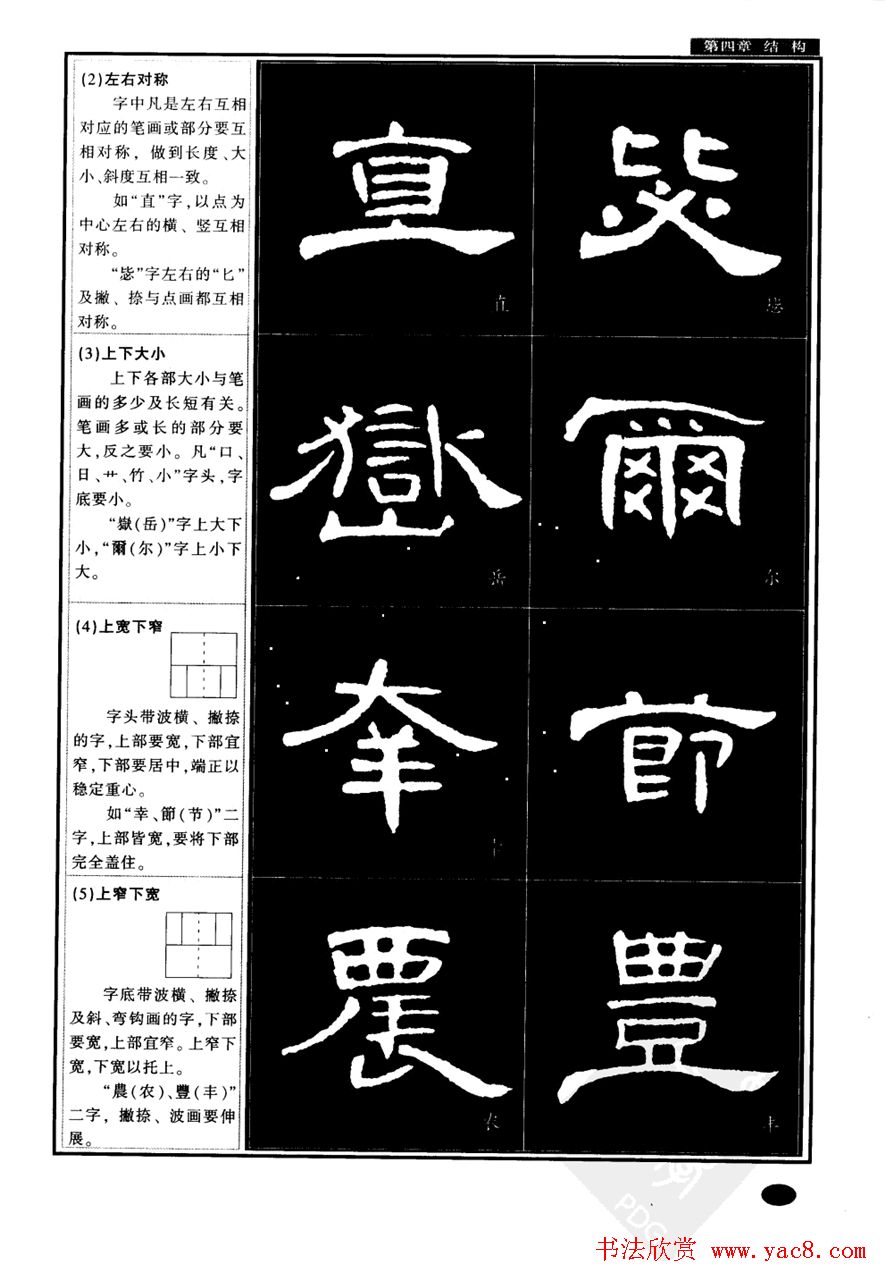 第四章 结构
(2)左右对称
字中凡是左右互相
对应的笔画或部分要互
相对称，做到长度、大
小、斜度互相一致。
如“直”字，以点为
中心左右的横、竖互相
对称。
“毖”字左右的“匕”
及撇、捺与点画都互相
对称。
直
毖
直
毖
(3)上下大小
上下各部大小与笔
画的多少及长短有关。
笔画多或长的部分要
大，反之要小。凡“口、
日、艹、竹、小”字头，字
底要小。
“嶽(岳)”字上大下
小，“爾(尔)”字上小下
大。
嶽
爾
岳
尔
(4)上宽下窄
字头带波横、撇捺
的字，上部要宽，下部宜
窄，下部要居中，端正以
稳定重心。
如“幸、節(节)”二
字，上部皆宽，要将下部
完全盖住。
幸
節
(5)上窄下宽
字底带波横、撇捺
及斜、弯钩画的字，下部
要宽，上部宜窄。上窄下
宽，下宽以托上。
“農(农)、豐(丰)”
二字，撇捺、波画要伸
展。
農
豐
农
丰
PDG
书法欣赏 www.yac8.com